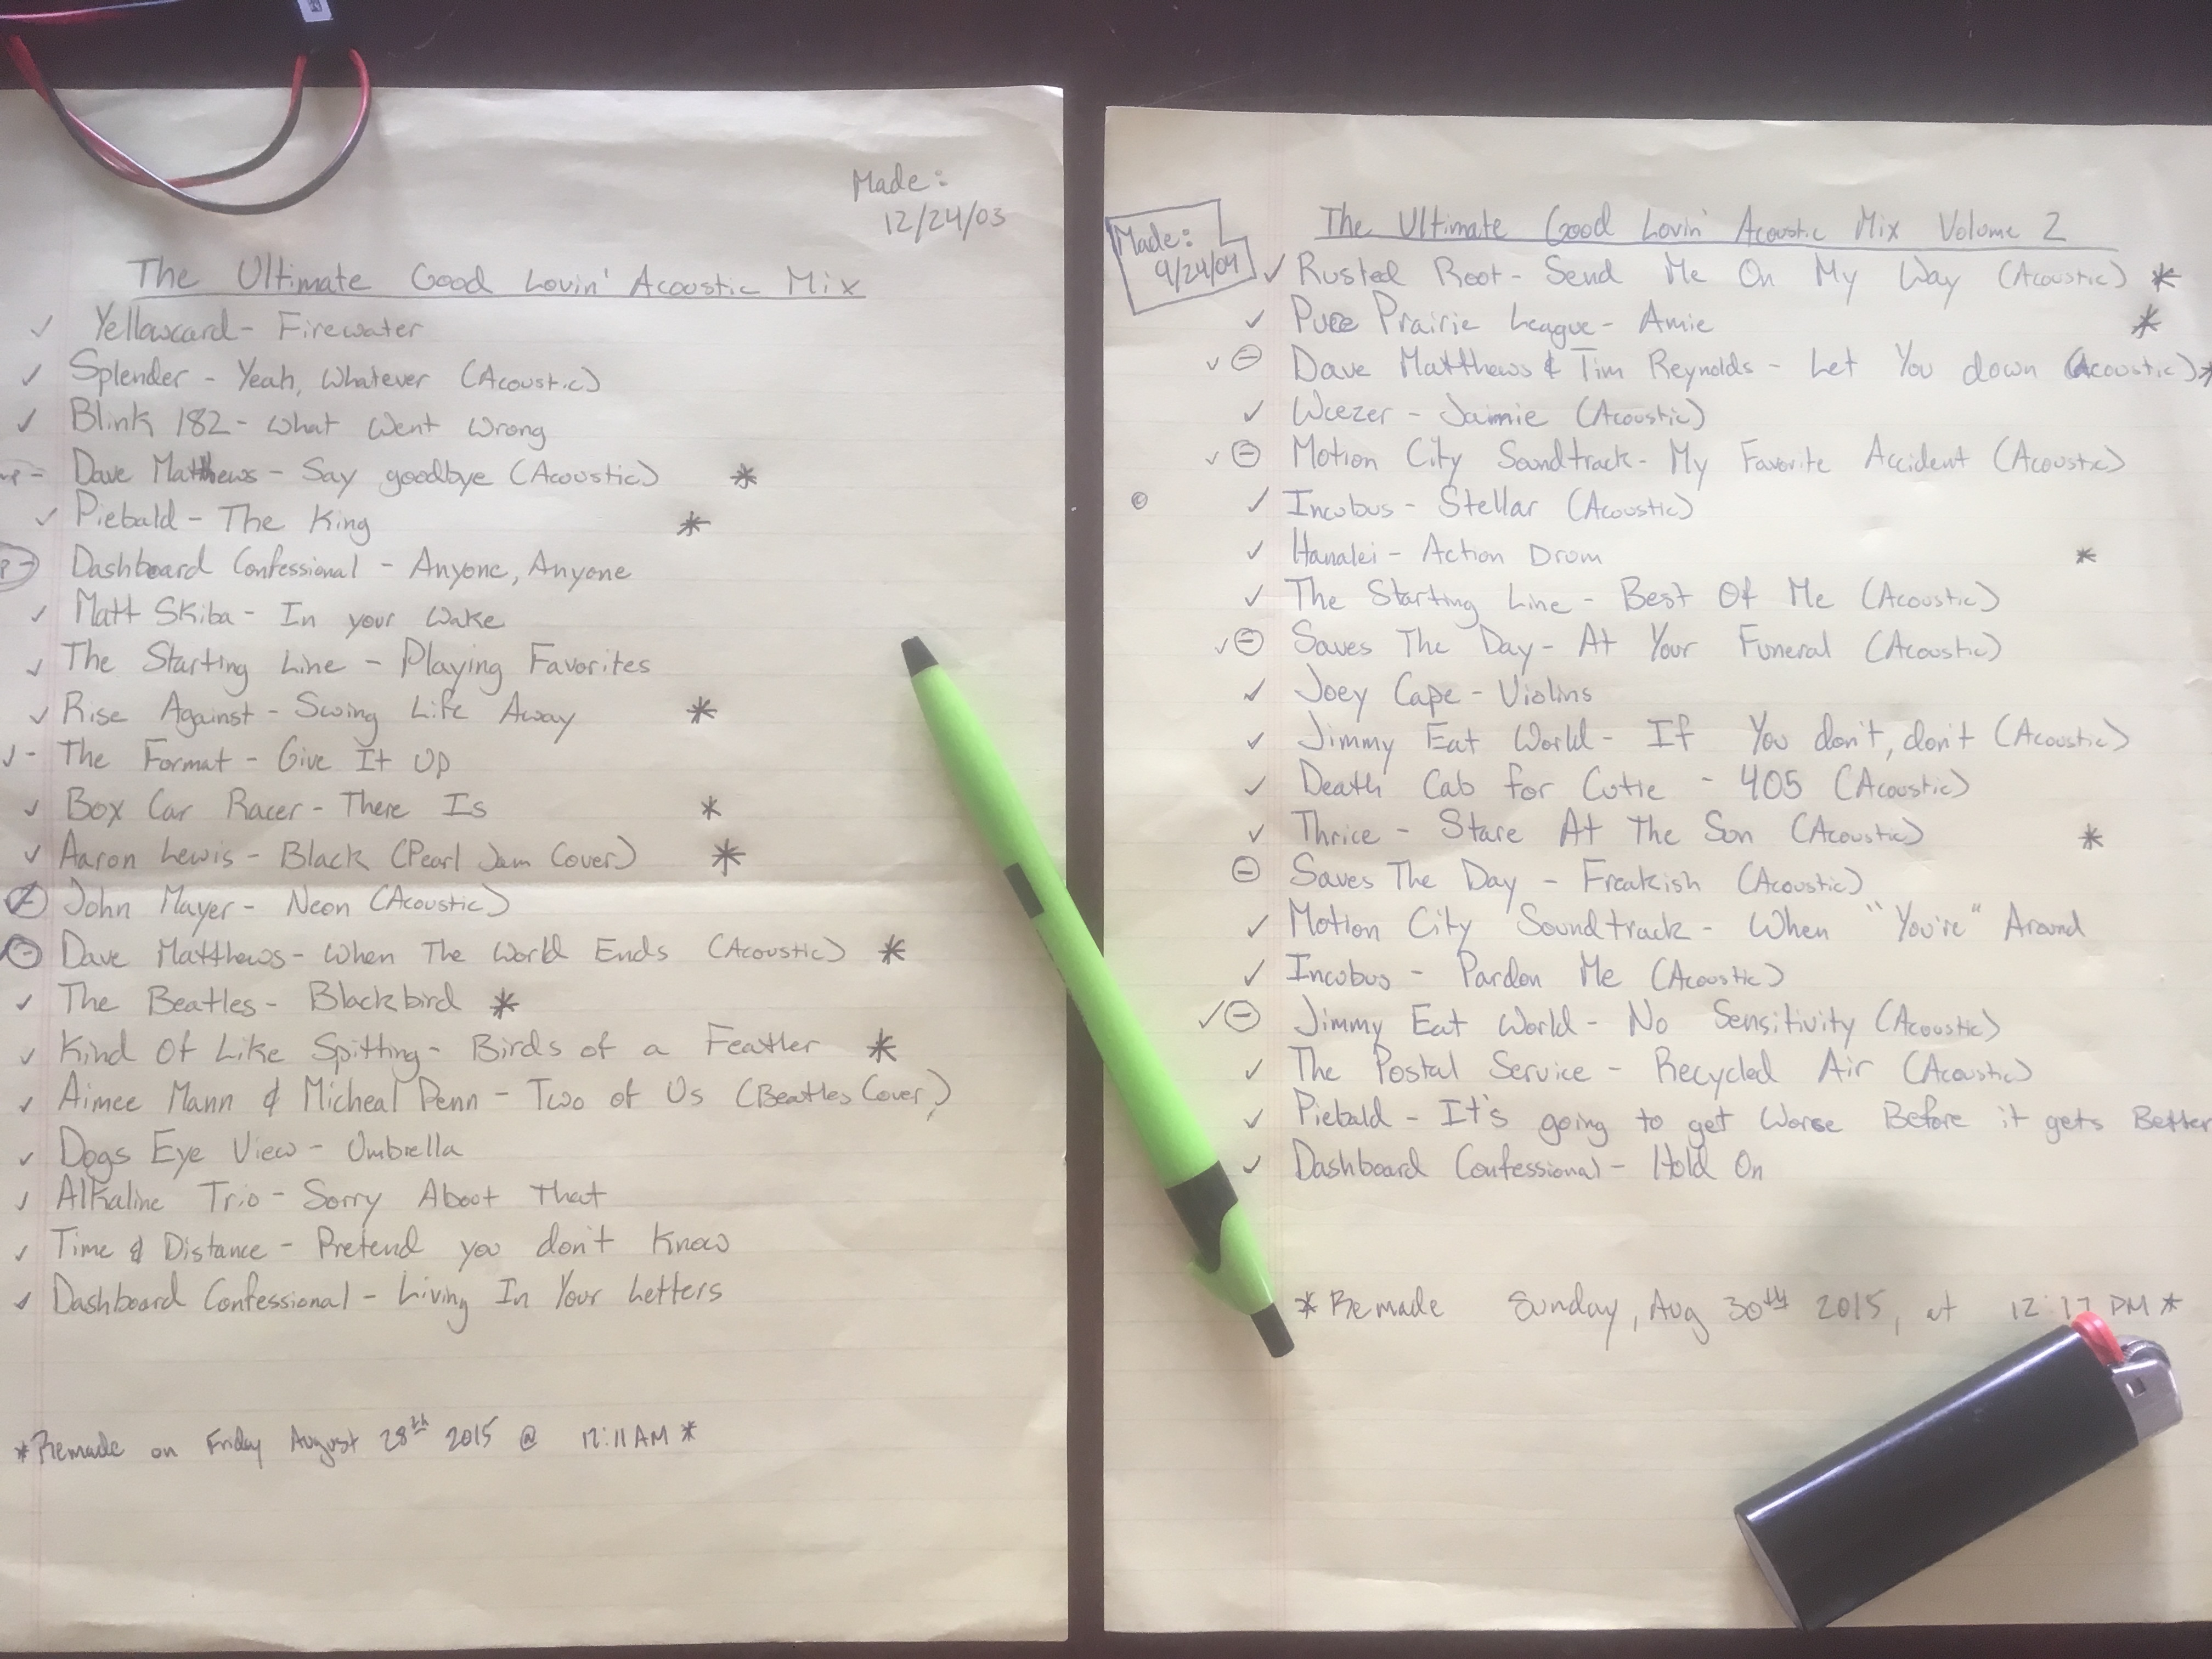 Made:
12/24/03
The Ultimate Good Lovin' Acoustic Mix
✓ Yellowcard - Firewater
✓ Splender - Yeah, Whatever (Acoustic)
✓ Blink 182 - What Went Wrong
Dave Matthews - Say goodbye (Acoustic) *
✓ Piebald - The King *
Dashboard Confessional - Anyone, Anyone
✓ Matt Skiba - In your Wake
✓ The Starting Line - Playing Favorites
✓ Rise Against - Swing Life Away *
✓- The Format - Give It Up
✓ Box Car Racer - There Is *
✓ Aaron Lewis - Black (Pearl Jam Cover) *
John Mayer - Neon (Acoustic)
⊖ Dave Matthews - When The World Ends (Acoustic) *
✓ The Beatles - Blackbird *
✓ Kind Of Like Spitting - Birds of a Feather *
✓ Aimee Mann & Micheal Penn - Two of Us (Beatles Cover)
✓ Dogs Eye View - Umbrella
✓ Alkaline Trio - Sorry About That
✓ Time & Distance - Pretend you don't know
✓ Dashboard Confessional - Living In Your Letters
*Remade on Friday August 28th 2015 @ 12:11 AM*
The Ultimate Good Lovin' Acoustic Mix Volume 2
Made:
9/24/04
✓ Rusted Root - Send Me On My Way (Acoustic) *
✓ Pure Prairie League - Amie *
✓⊖ Dave Matthews & Tim Reynolds - Let You down (Acoustic) *
✓ Weezer - Jaimie (Acoustic)
✓⊖ Motion City Soundtrack - My Favorite Accident (Acoustic)
© ✓ Incubus - Stellar (Acoustic)
✓ Hanalei - Action Drum *
✓ The Starting Line - Best Of Me (Acoustic)
✓⊖ Saves The Day - At Your Funeral (Acoustic)
✓ Joey Cape - Violins
✓ Jimmy Eat World - If You don't, don't (Acoustic)
✓ Death Cab for Cutie - 405 (Acoustic)
✓ Thrice - Stare At The Sun (Acoustic) *
⊖ Saves The Day - Freakish (Acoustic)
✓ Motion City Soundtrack - When "You're" Around
✓ Incubus - Pardon Me (Acoustic)
✓⊖ Jimmy Eat World - No Sensitivity (Acoustic)
✓ The Postal Service - Recycled Air (Acoustic)
✓ Piebald - It's going to get Worse Before it gets Better
✓ Dashboard Confessional - Hold On
*Remade Sunday, Aug 30th 2015, at 12:17 PM*